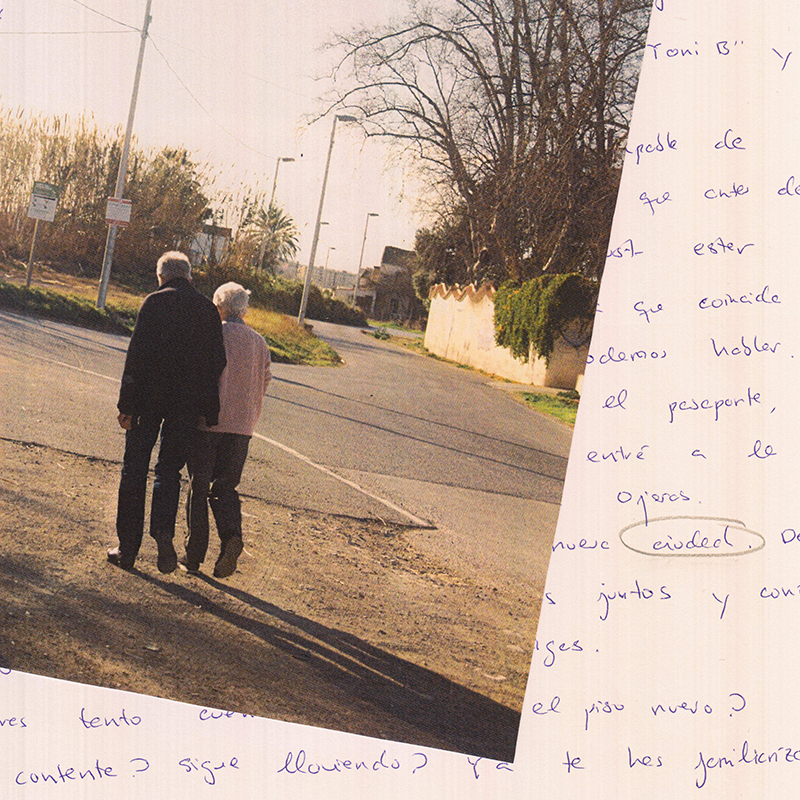 Toni B" y
de
que antes de
ester
que coincide
podemos hablar.
el pasaporte,
entré a la
ojeras.
nueva ciudad. De
s juntos y conti
ges.
res tanto el piso nuevo?
contente? sigue lloviendo? Ya te has familiariza